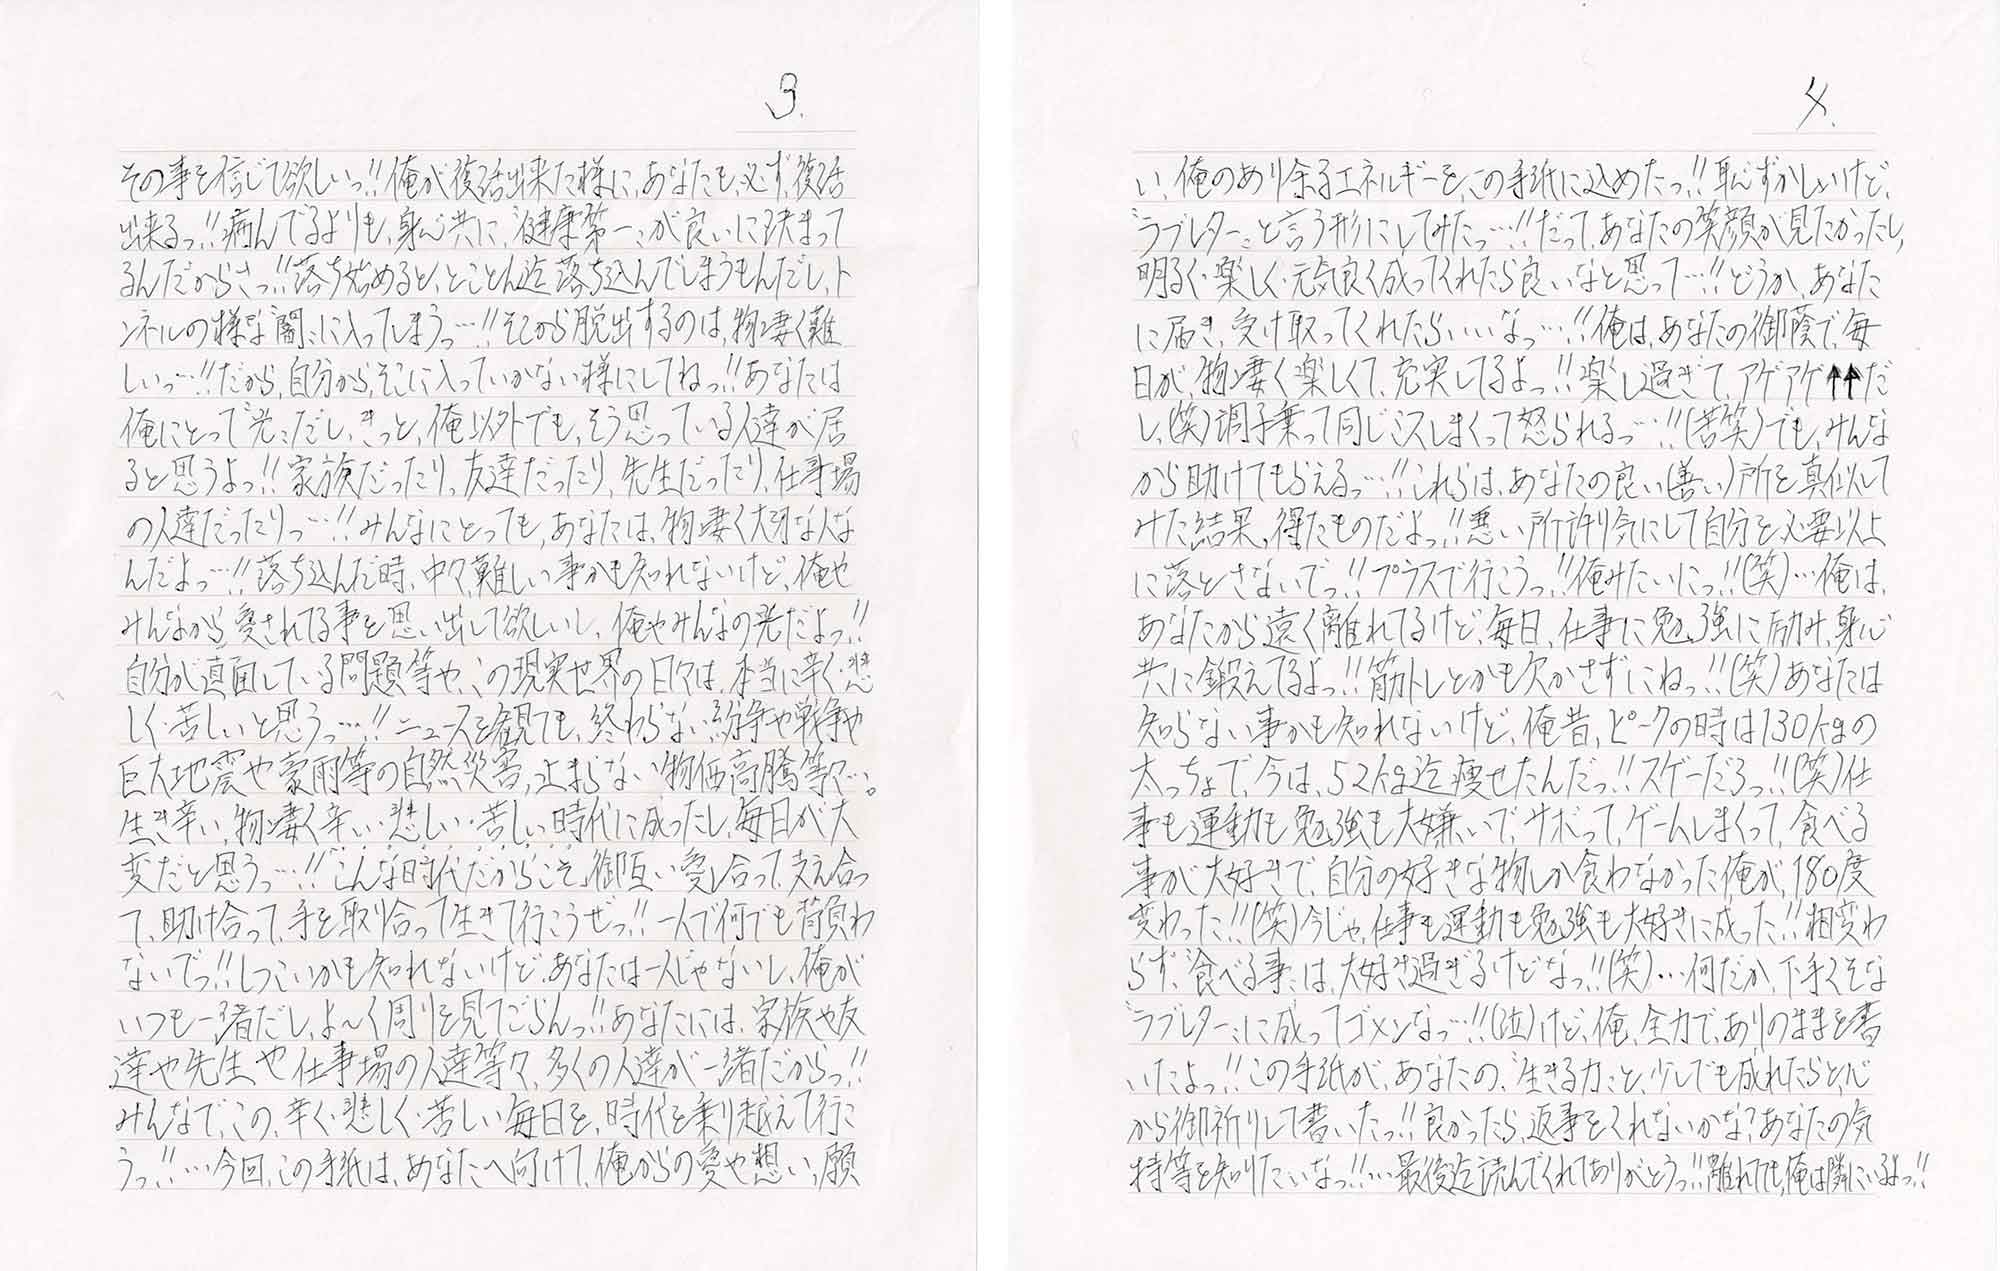 3.
その事を信じて欲しいっ!!俺が復活出来た様に、あなたも、必ず、復活
出来るっ!!病んでるよりも、身心共に、〝健康第一〟が良いに決まって
るんだからさっ!!落ち始めると、とことん迄落ち込んでしまうもんだし、ト
ンネルの様な〝闇〟に入ってしまうっ…!!そこから脱出するのは、物凄く難
しいっ…!!だから、自分から、そこに入っていかない様にしてねっ!!あなたは
俺にとって〝光〟だし、きっと、俺以外でも、そう思っている人達が居
ると思うよっ!!家族だったり、友達だったり、先生だったり、仕事場
の人達だったりっ…!!みんなにとっても、あなたは、物凄く大切な人な
んだよっ…!!落ち込んだ時、中々、難しい事かも知れないけど、俺や
みんなから、愛されてる事を思い出して欲しいし、俺やみんなの光だよっ!!
自分が直面している問題等や、この現実世界の日々は、本当に辛く・悲
しく・苦しいと思うっ…!!ニュースを観ても、終わらない紛争や戦争や
巨大地震や豪雨等の自然災害、止まらない物価高騰等々…。
生き辛い、物凄く辛い・悲しい・苦しい時代に成ったし、毎日が大
変だと思うっ…!!「こんな時代だからこそ」、御互い愛し合って、支え合っ
て、助け合って、手を取り合って生きて行こうぜっ!!一人で何でも背負わ
ないでっ!!しつこいかも知れないけど、あなたは一人じゃないし、俺が
いつも一緒だし、よ〜く周りを見てごらんっ!!あなたには、家族や友
達や先生や仕事場の人達等々、多くの人達が一緒だからっ!!
みんなで、この、辛く・悲しく・苦しい毎日を、時代を乗り越えて行こ
うっ!!…今回、この手紙は、あなたへ向けて、俺からの愛や想い、願
4.
い、俺のあり余るエネルギーを、この手紙に込めたっ!!恥ずかしいけど、
〝ラブレター〟と言う形にしてみたっ…!!だって、あなたの笑顔が見たかったし、
明るく・楽しく・元気良く成ってくれたら良いなと思って…!!どうか、あなた
に届き、受け取ってくれたらいいなっ…!!俺は、あなたの御蔭で、毎
日が、物凄く楽しくて、充実してるよっ!!楽し過ぎて、アゲアゲ↑↑だ
し、(笑)調子乗って同じミスしまくって怒られるっ…!!(苦笑)でも、みんな
から助けてもらえるっ…!!これらは、あなたの良い(善い)所を真似して
みた結果、得たものだよっ!!悪い所許り気にして自分を必要以上
に落とさないでっ!!プラスで行こうっ!!俺みたいにっ!!(笑)…俺は、
あなたから遠く離れてるけど、毎日、仕事に勉強に励み、身心
共に鍛えてるよっ!!筋トレとかも欠かさずにねっ!!(笑)あなたは
知らない事かも知れないけど、俺昔、ピークの時は130kgの
太っちょで、今は、52kg迄痩せたんだっ!!スゲーだろっ!!(笑)仕
事も運動も勉強も大嫌いで、サボって、ゲームしまくって、食べる
事が大好きで、自分の好きな物しか食わなかった俺が、180度
変わった!!(笑)今じゃ、仕事も運動も勉強も大好きに成った!!相変わ
らず、〝食べる事〟は、大好き過ぎるけどなっ!!(笑)…何だか、下手くそな
〝ラブレター〟に成ってゴメンなっ…!!(泣)けど、俺、全力で、ありのままを書
いたよっ!!この手紙が、あなたの、〝生きる力〟と、少しでも成れたらと、心
から御祈りして書いたっ!!良かったら、返事をくれないかな?あなたの気
持等を知りたいなっ!!…最後迄読んでくれてありがとうっ!!離れてても、俺は隣にいるよっ!!